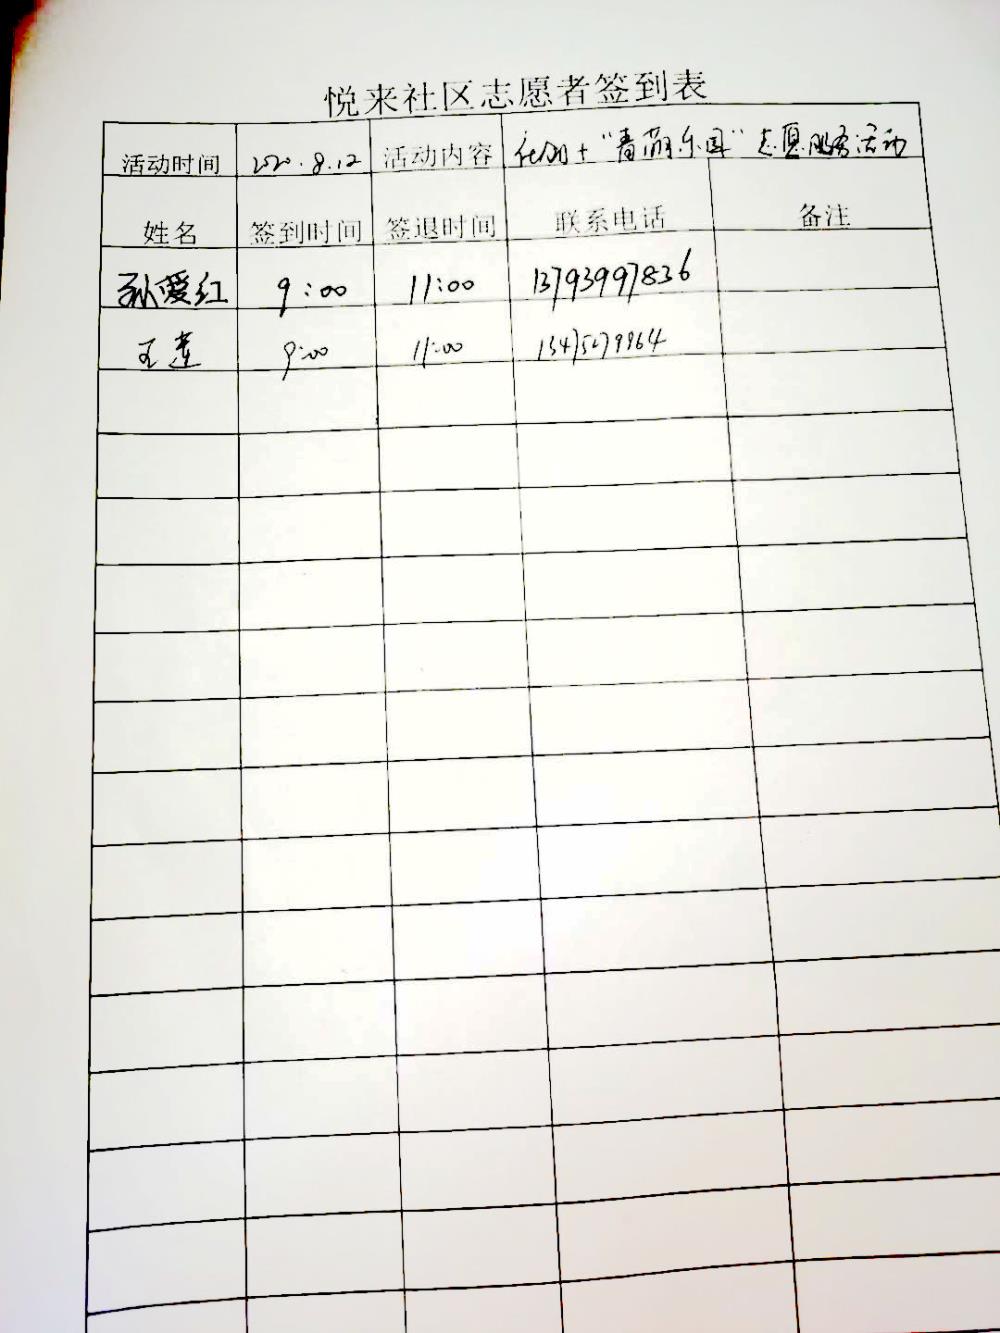 悦来社区志愿者签到表
活动时间 2020.8.12 活动内容 社团+“青萌乐园”志愿服务活动
姓名 签到时间 签退时间 联系电话 备注
孙爱红 9:00 11:00 13793997836
王莲 9:00 11:00